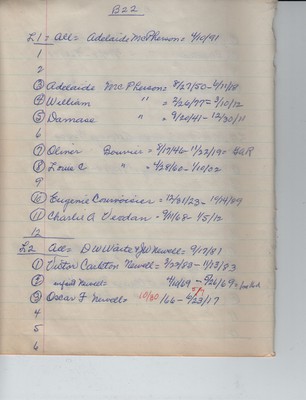 B22
L1 = All = Adelaide McPherson = 4/10/91
1
2
③ Adelaide McPherson = 8/27/50 - 4/11/18
④ William " = 2/26/77 = 3/10/12
⑤ Damase " = 9/20/41 - 12/30/11
6
⑦ Oliver Bouvier = 3/17/46 - 11/23/19 = GAR
⑧ Louis C " = 4/28/60 - 1/10/22
9
⑩ Eugenie = 12/31/23 - 1/4/89
⑪ Charles A = 9/11/68 - 1/5/12
12
L2 All = D W Waite & JW Newell = 9/17/81
① Victor Carlton Newell = 2/23/83 - 11/13/83
② infant Newell = 4/10/69 - 5/26/69 =
③ Oscar F Newell = 10/30/66 - 4/23/17
5/9
4
5
6